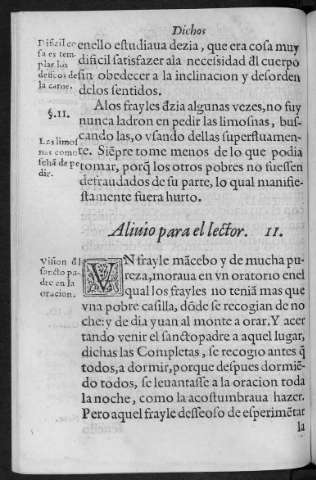 Dichos
Dificil co
sa es tem-
plar los
deseos de
la carne.
enello estudiaua dezia, que era cosa muy
dificil satisfazer ala necesidad đl cuerpo
sin obedecer a la inclinacion y desorden
delos sentidos.
§.II.
Las limos
nas como
se hã de pe
dir.
Alos frayles đzia algunas vezes, no fuy
nunca ladron en pedir las limosnas, bus-
cando las, o vsando dellas superfluamen-
te. Siẽpre tome menos de lo que podia
tomar, porq̃ los otros pobres no fuessen
defraudados de su parte, lo qual manifie-
stamente fuera hurto.
Aliuio para el lector. II.
Vision đl
sancto pa-
dre en la
oracion.
VN frayle mãcebo y de mucha pu-
reza, moraua en vn oratorio enel
qual los frayles no teniã mas que
vna pobre casilla, dõde se recogian de no
che: y de dia yuan al monte a orar. Y acer
tando venir el sancto padre a aquel lugar,
dichas las Completas, se recogio antes q̃
todos, a dormir, porque despues dormiẽ-
do todos, se leuantasse a la oracion toda
la noche, como la acostumbraua hazer.
Pero aquel frayle desseoso de esperimẽtar
la